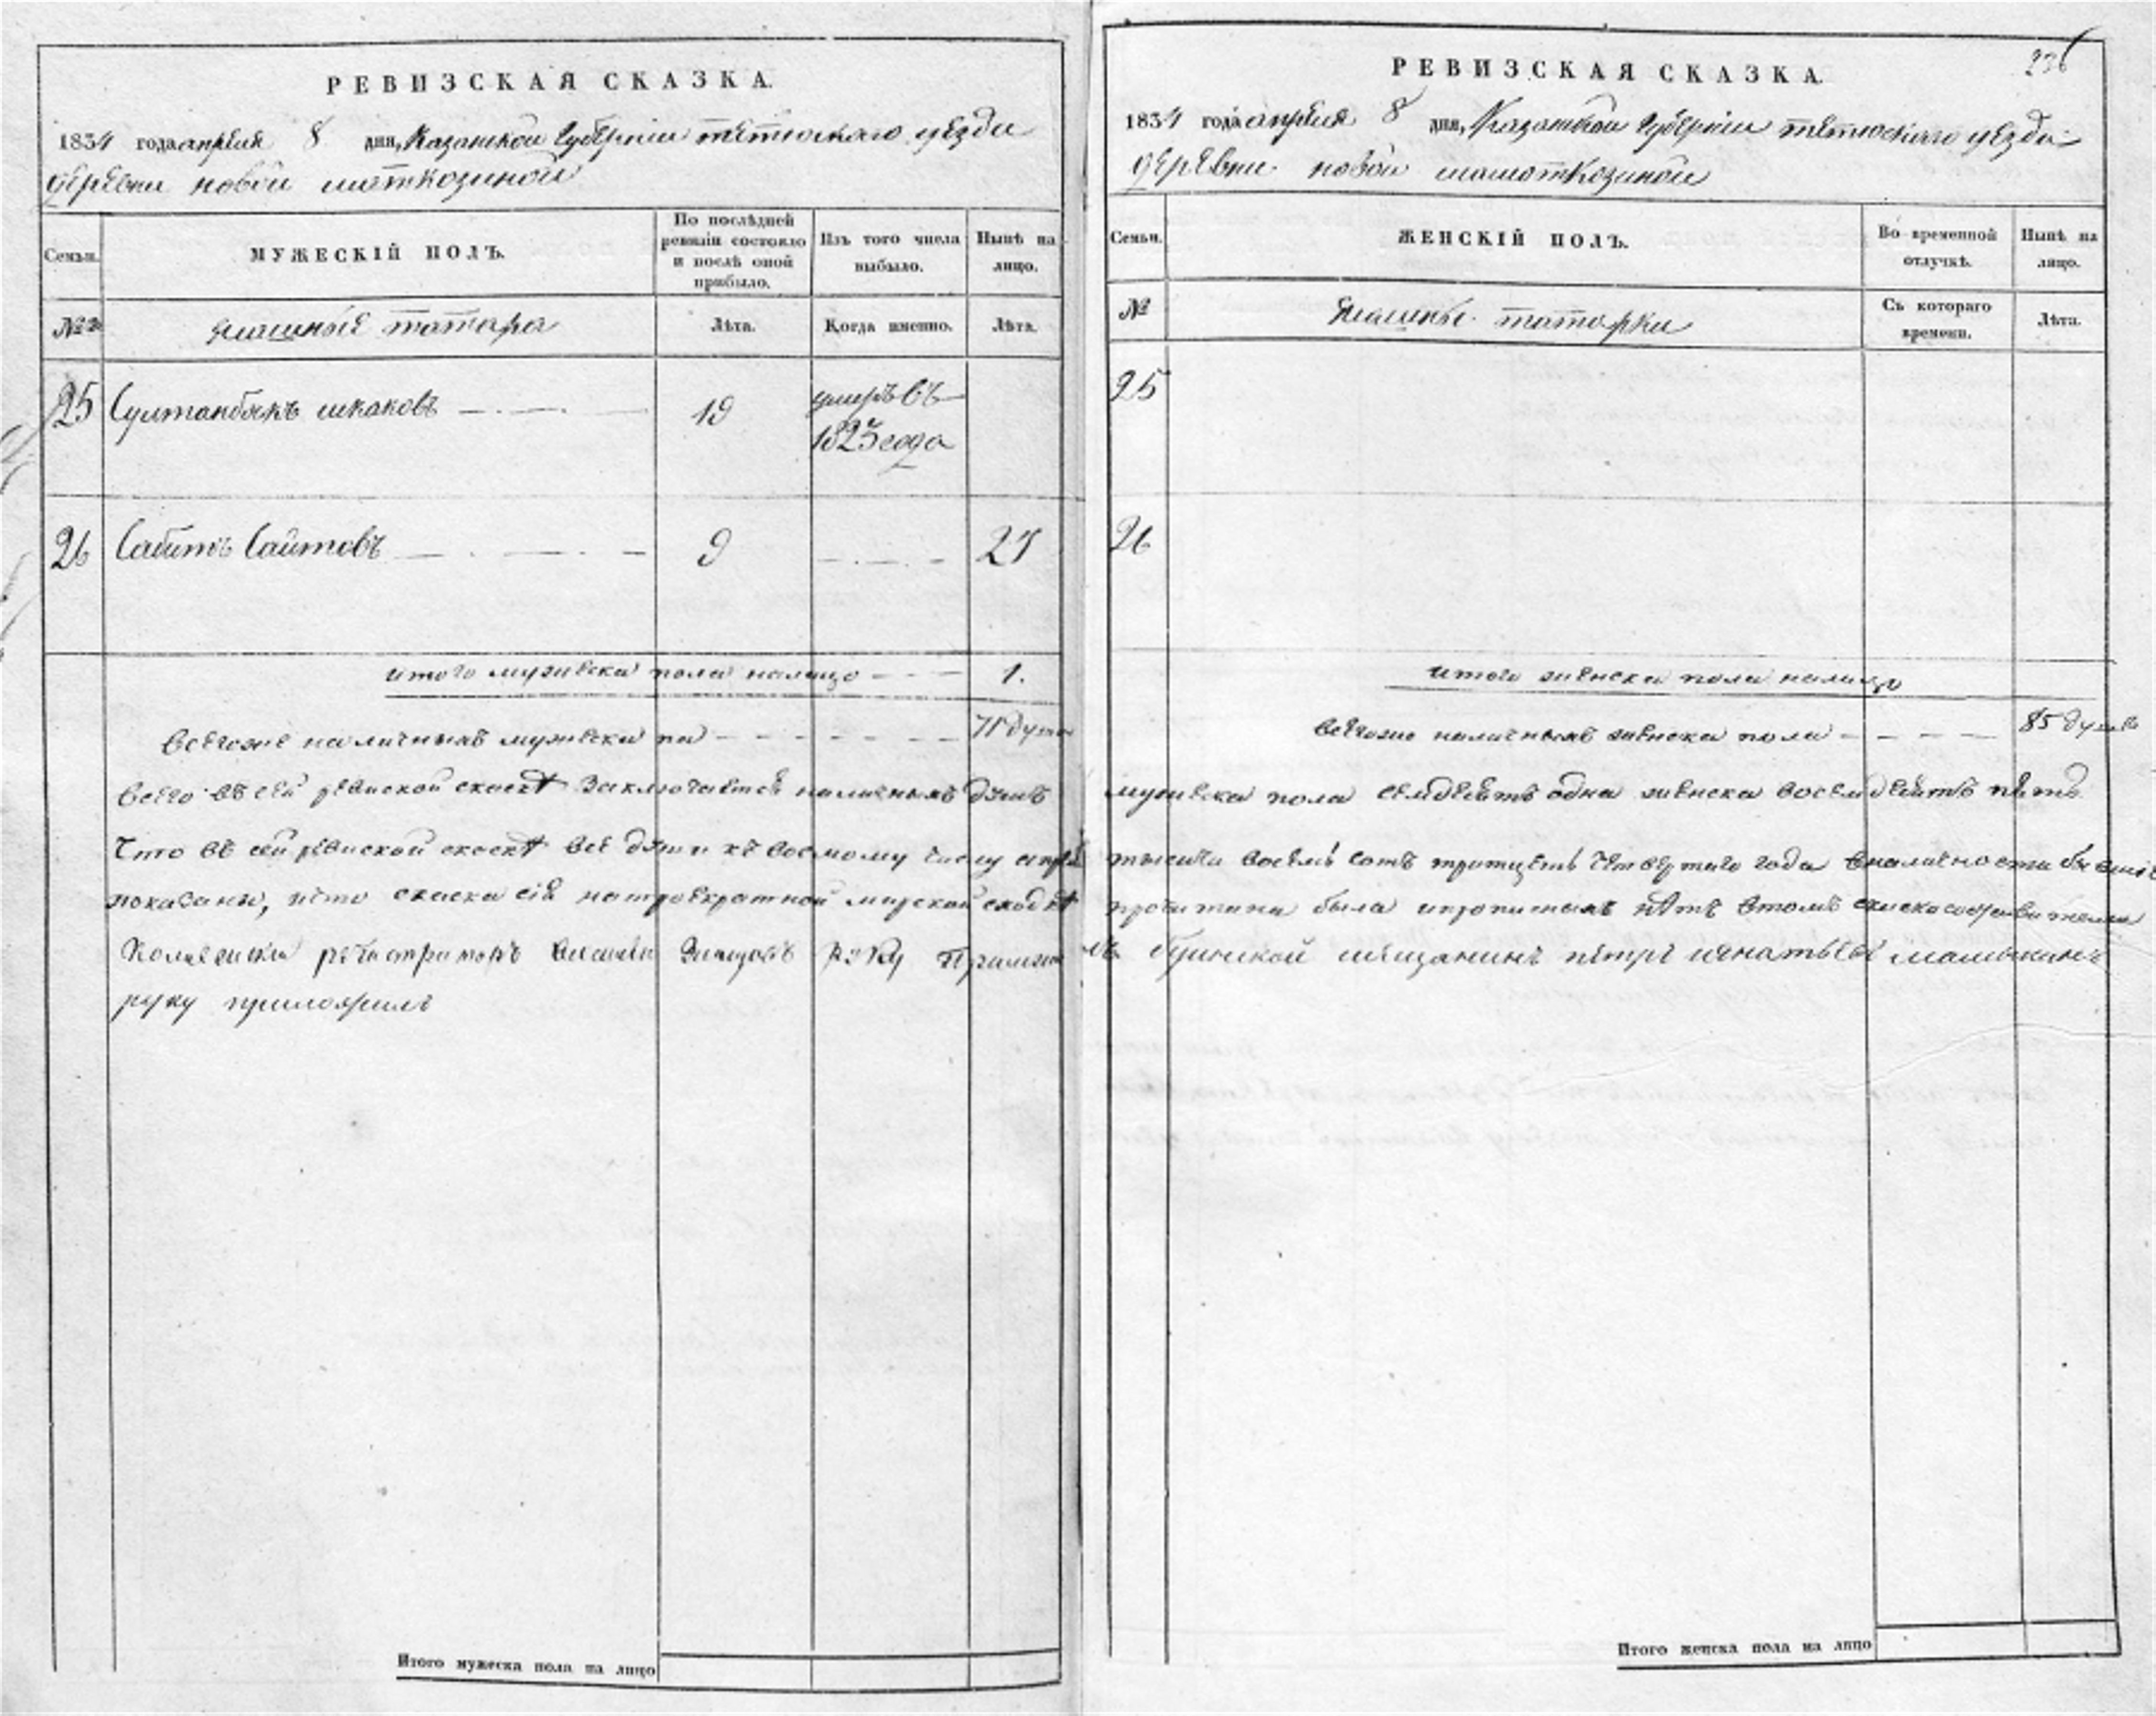 РЕВИЗСКАЯ СКАЗКА.
1834 года апреля 8 дня, Казанской Губернии тетюскаго уезда
деревни новой
Семьи.
МУЖЕСКІЙ ПОЛЪ.
По послѣдней ревизіи состояло и послѣ оной прибыло.
Изъ того числа выбыло.
Нынѣ на лицо.
№
ясашные татара
Лѣта.
Когда именно.
Лѣта.
25 Султанбякъ 19 умеръ въ
1823 года
26 Сабитъ Саитовъ 9 27
итого мужеска пола налицо 1.
всегоже наличныхъ мужеска по 71 душа
всего въ сей ревиской скаскѣ заключается наличныхъ душъ
Что въ сей ревиской скаскѣ все души къ восмому числу
показаны, что скаска сія натроекратной мирской сходкѣ
руку приложилъ
Итого мужеска пола на лицо
236
РЕВИЗСКАЯ СКАЗКА.
1834 года апреля 8 дня, Казанской Губернии тетюскаго уезда
деревни новой
Семьи.
ЖЕНСКІЙ ПОЛЪ.
Во временной отлучкѣ.
Нынѣ на лицо.
№
татарки
Съ котораго времени.
Лѣта.
25
26
итого женска пола налицо
всегоже наличныхъ женска пола 85 душъ
мужеска пола семдесятъ одна женска восемдесятъ пять
тысяча восемь сотъ тритцать четвертаго года вналичности
прочитана была ипрописныхъ нѣтъ втомъ
мещанинъ петръ игнатьевъ
Итого женска пола на лицо